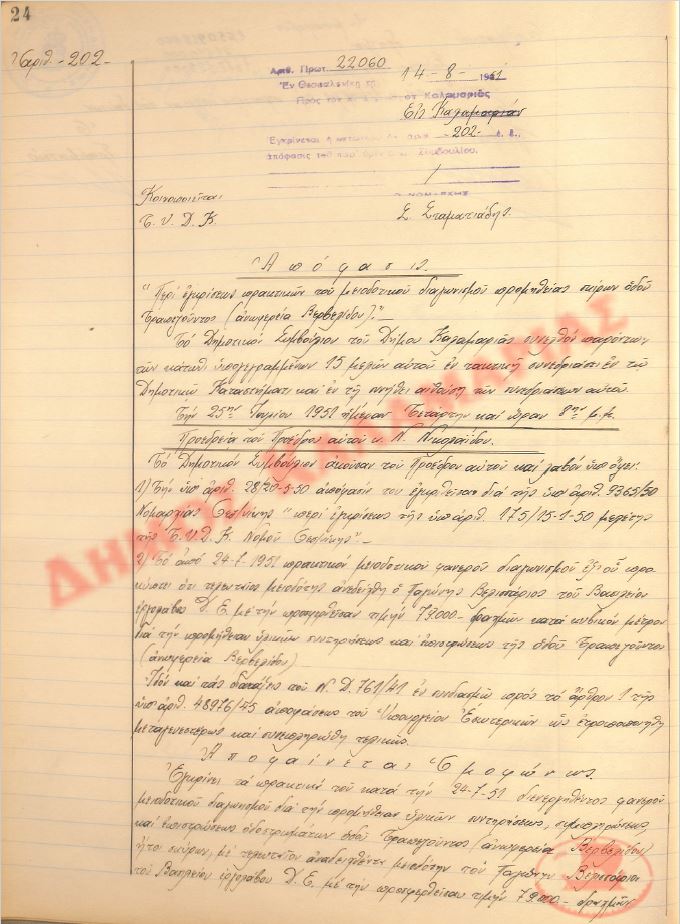 24
Ἀριθ. - 202 -
Ἀριθ. Πρωτ. 22060
Ἐν Θεσσαλονίκῃ τῇ 14-8-1951
Πρὸς τὸν Καλαμαριᾶς
Εἰς Καλαμαριάν
Ἐγκρίνεται ἡ ἀριθ. 202- ἐ. ἔ.
ἀπόφασις τοῦ Συμβουλίου.
Ὁ ΝΟΜΑΡΧΗΣ
Κοινοποιεῖται
Τ. Υ. Δ. Κ.
Σ. Σταματιάδης.
Ἀπόφασις.
"Περὶ ἐγκρίσεως πρακτικῶν τοῦ μειοδοτικοῦ διαγωνισμοῦ προμηθείας σκύρων ὁδοῦ
Τραπεζοῦντος (ἀνωφερεία Βερβελίδου)."
Τὸ Δημοτικὸν Συμβούλιον τοῦ Δήμου Καλαμαριᾶς συνελθὸν παρόντων
τῶν κάτωθι ὑπογεγραμμένων 15 μελῶν αὐτοῦ ἐν τακτικῇ συνεδριάσει ἐν τῷ
Δημοτικῷ Καταστήματι καὶ ἐν τῇ συνήθει αἰθούσῃ τῶν συνεδριάσεων αὐτοῦ.
Τὴν 25ην Ἰουλίου 1951 ἡμέραν Τετάρτην καὶ ὥραν 8ην μ.μ.
Προεδρεία τοῦ Προέδρου αὐτοῦ κ. Νικολαΐδου.
Τὸ Δημοτικὸν Συμβούλιον ἀκοῦσαν τοῦ Προέδρου αὐτοῦ καὶ λαβὸν ὑπ' ὄψει:
1) Τὴν ὑπ' ἀριθ. 28/20-5-50 ἀπόφασίν του ἐγκριθεῖσαν διὰ τῆς ὑπ' ἀριθ. 9365/50
Νομαρχίας Θεσ/νίκης "περὶ ἐγκρίσεως τῆς ὑπ' ἀριθ. 175/15-1-50 μελέτης
τῆς Τ. Υ. Δ. Κ. Νομοῦ Θεσ/νίκης" -
2) Τὸ ἀπὸ 24-7-1951 πρακτικὸν μειοδοτικοῦ φανεροῦ διαγωνισμοῦ ἐξ οὗ προ-
κύπτει ὅτι τελευταῖος μειοδότης ἀνεδείχθη ὁ Βελισσάριος τοῦ Βασιλείου
ἐργολάβος Δ. Ε. μὲ τὴν προσφερθεῖσαν τιμὴν 79.000- δραχμῶν κατὰ κυβικὸν μέτρον
διὰ τὴν προμήθειαν ὑλικῶν συντηρήσεως καὶ ἐπιστρώσεως τῆς ὁδοῦ Τραπεζοῦντος
(ἀνωφερεία Βερβελίδου)
Ἰδὸν καὶ τὰς διατάξεις τοῦ Ν. Δ. 761/41 ἐν συνδυασμῷ πρὸς τὸ ἄρθρον 1 τῆς
ὑπ' ἀριθ. 48976/45 ἀποφάσεως τοῦ Ὑπουργείου Ἐσωτερικῶν ὡς ἐτροποποιήθη
μεταγενεστέρως καὶ συνεπληρώθη τελικῶς.
Ἀποφαίνεται Ὁμοφώνως
Ἐγκρίνει τὰ πρακτικὰ τοῦ κατὰ τὴν 24-7-51 διενεργηθέντος φανεροῦ
μειοδοτικοῦ διαγωνισμοῦ διὰ τὴν προμήθειαν ὑλικῶν συντηρήσεως, συμπληρώσεως,
καὶ ἐπιστρώσεως ὁδοστρωμάτων ὁδοῦ Τραπεζοῦντος (ἀνωφερεία Βερβελίδου)
ἤτοι σκύρων, μὲ τελευταῖον ἀναδειχθέντα μειοδότην τὸν Βελισσάριον
τοῦ Βασιλείου ἐργολάβον Δ. Ε. μὲ τὴν προσφερθεῖσαν τιμὴν 79.000- δραχμῶν
ΔΗΜΟΣ ΚΑΛΑΜΑΡΙΑΣ